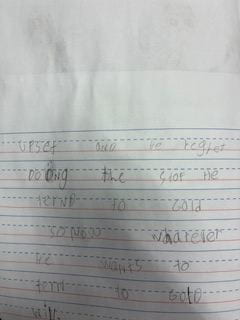 UPSet and he regret
DOing the stof He
ternD to Gold
so Now wharever
He wants to
tern to GOLD
will